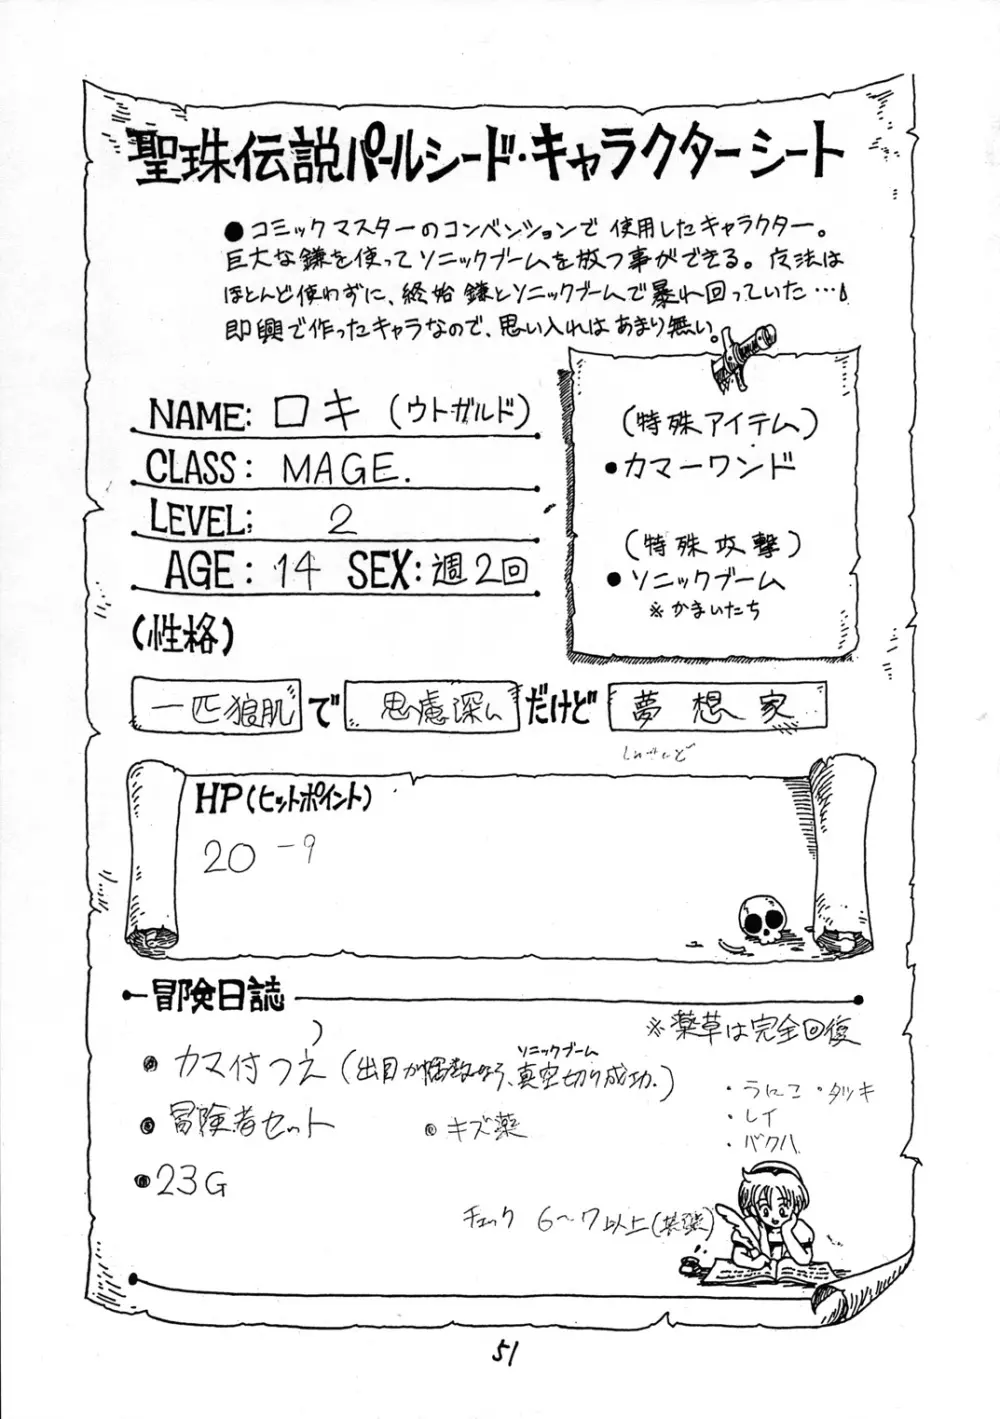 聖珠伝説パールシード・キャラクターシート
●コミックマスターのコンベンションで使用したキャラクター。
巨大な鎌を使ってソニックブームを放つ事ができる。魔法は
ほとんど使わずに、終始鎌とソニックブームで暴れ回っていた…
即興で作ったキャラなので、思い入れはあまり無い。
NAME: ロキ (ウトガルド)
CLASS: MAGE.
LEVEL: 2
AGE: 14 SEX: 週2回
(特殊アイテム)
●カマーワンド
(特殊攻撃)
●ソニックブーム
※かまいたち
(性格)
一匹狼肌 で 思慮深い だけど 夢想家
HP(ヒットポイント)
20 -9
冒険日誌
※薬草は完全回復
ソニックブーム
●カマ付つえ(出目が偶数なら、真空切り成功.)
●冒険者セット ●キズ薬
●23G
・うにこ ・タツキ
・レイ
・バクハ
チェック 6〜7以上
51